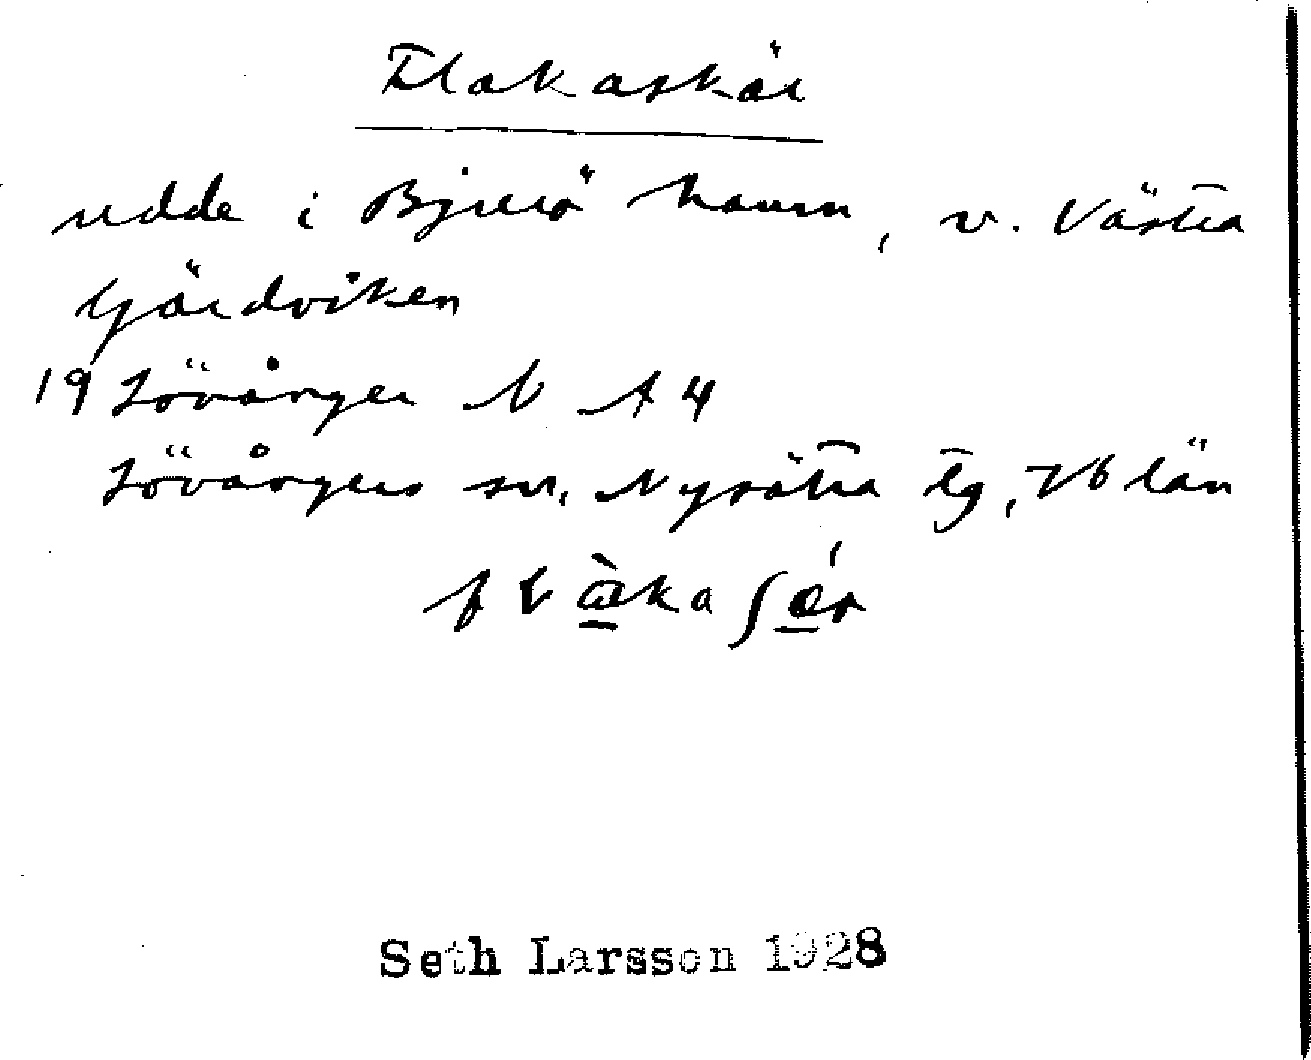 Flakaskär
udde i Bjurö hamn, v. Västra
Gärdviken
19 Lövånger N A 4
Lövångers sn, Nysätra tg, Vb län
flàkaʃǽr
Seth Larsson 1928